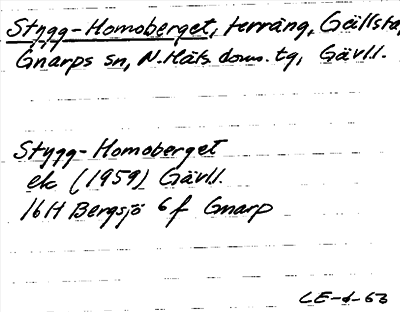 Stygg-Homoberget, terräng, Gällsta,
Gnarps sn, N. Häls. doms. tg, Gävl.l.
Stygg-Homoberget
ek (1959) Gävl.l.
16H Bergsjö 6f Gnarp
LE-d-63